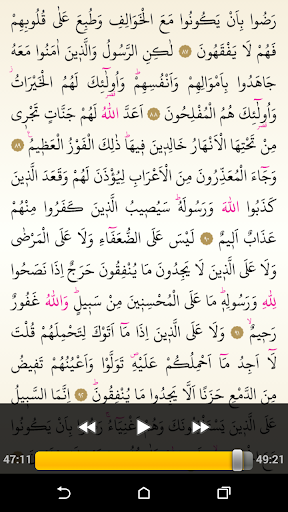 رَضُوا بِاَنْ يَكُونُوا مَعَ الْخَوَالِفِ وَطُبِعَ عَلٰى قُلُوبِهِمْ
فَهُمْ لَا يَفْقَهُونَ ﴿٨٧﴾ لٰكِنِ الرَّسُولُ وَالَّذ۪ينَ اٰمَنُوا مَعَهُ
جَاهَدُوا بِاَمْوَالِهِمْ وَاَنْفُسِهِمْۜ وَاُو۬لٰٓئِكَ لَهُمُ الْخَيْرَاتُۘ
وَاُو۬لٰٓئِكَ هُمُ الْمُفْلِحُونَ ﴿٨٨﴾ اَعَدَّ اللّٰهُ لَهُمْ جَنَّاتٍ تَجْر۪ي
مِنْ تَحْتِهَا الْاَنْهَارُ خَالِد۪ينَ ف۪يهَاۜ ذٰلِكَ الْفَوْزُ الْعَظ۪يمُ ﴿٨٩﴾
وَجَٓاءَ الْمُعَذِّرُونَ مِنَ الْاَعْرَابِ لِيُؤْذَنَ لَهُمْ وَقَعَدَ الَّذ۪ينَ
كَذَبُوا اللّٰهَ وَرَسُولَهُۜ سَيُص۪يبُ الَّذ۪ينَ كَفَرُوا مِنْهُمْ
عَذَابٌ اَل۪يمٌ ﴿٩٠﴾ لَيْسَ عَلَى الضُّعَفَٓاءِ وَلَا عَلَى الْمَرْضٰى
وَلَا عَلَى الَّذ۪ينَ لَا يَجِدُونَ مَا يُنْفِقُونَ حَرَجٌ اِذَا نَصَحُوا
لِلّٰهِ وَرَسُولِه۪ۜ مَا عَلَى الْمُحْسِن۪ينَ مِنْ سَب۪يلٍۜ وَاللّٰهُ غَفُورٌ
رَح۪يمٌۙ ﴿٩١﴾ وَلَا عَلَى الَّذ۪ينَ اِذَا مَٓا اَتَوْكَ لِتَحْمِلَهُمْ قُلْتَ
لَٓا اَجِدُ مَٓا اَحْمِلُكُمْ عَلَيْهِۖ تَوَلَّوْا وَاَعْيُنُهُمْ تَف۪يضُ
مِنَ الدَّمْعِ حَزَنًا اَلَّا يَجِدُوا مَا يُنْفِقُونَۜ ﴿٩٢﴾ اِنَّمَا السَّب۪يلُ
عَلَى الَّذ۪ينَ يَسْتَأْذِنُونَكَ وَهُمْ اَغْنِيَٓاءُۚ رَضُوا بِاَنْ يَكُونُوا
47:11 49:21